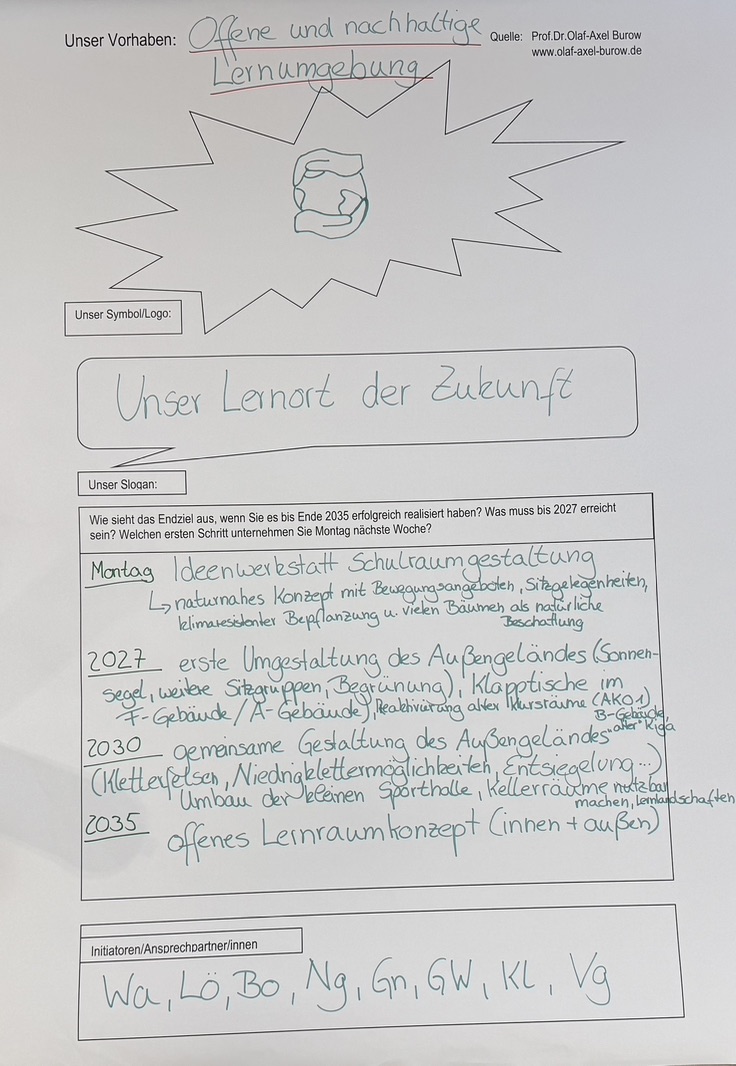 Unser Vorhaben: Offene und nachhaltige
Lernumgebung
Quelle: Prof.Dr.Olaf-Axel Burow
www.olaf-axel-burow.de
Unser Symbol/Logo:
Unser Lernort der Zukunft
Unser Slogan:
Wie sieht das Endziel aus, wenn Sie es bis Ende 2035 erfolgreich realisiert haben? Was muss bis 2027 erreicht
sein? Welchen ersten Schritt unternehmen Sie Montag nächste Woche?
Montag Ideenwerkstatt Schulraumgestaltung
↳ naturnahes Konzept mit Bewegungsangeboten, Sitzgelegenheiten,
klimaresistenter Bepflanzung u. vielen Bäumen als natürliche
Beschattung
2027 erste Umgestaltung des Außengeländes (Sonnen-
segel, weitere Sitzgruppen, Begrünung), Klapptische im
F-Gebäude/A-Gebäude), Reaktivierung alter Kursräume (AK01)
B-Gebäude,
"alter" Kiga
2030 gemeinsame Gestaltung des Außengeländes
(Kletterfelsen, Niedrigklettermöglichkeiten, Entsiegelung...)
Umbau der kleinen Sporthalle, Kellerräume nutzbar
machen, Lernlandschaften
2035 offenes Lernraumkonzept (innen + außen)
Initiatoren/Ansprechpartner/innen
Wa, Lö, Bo, Ng, Gn, GW, KL, Vg